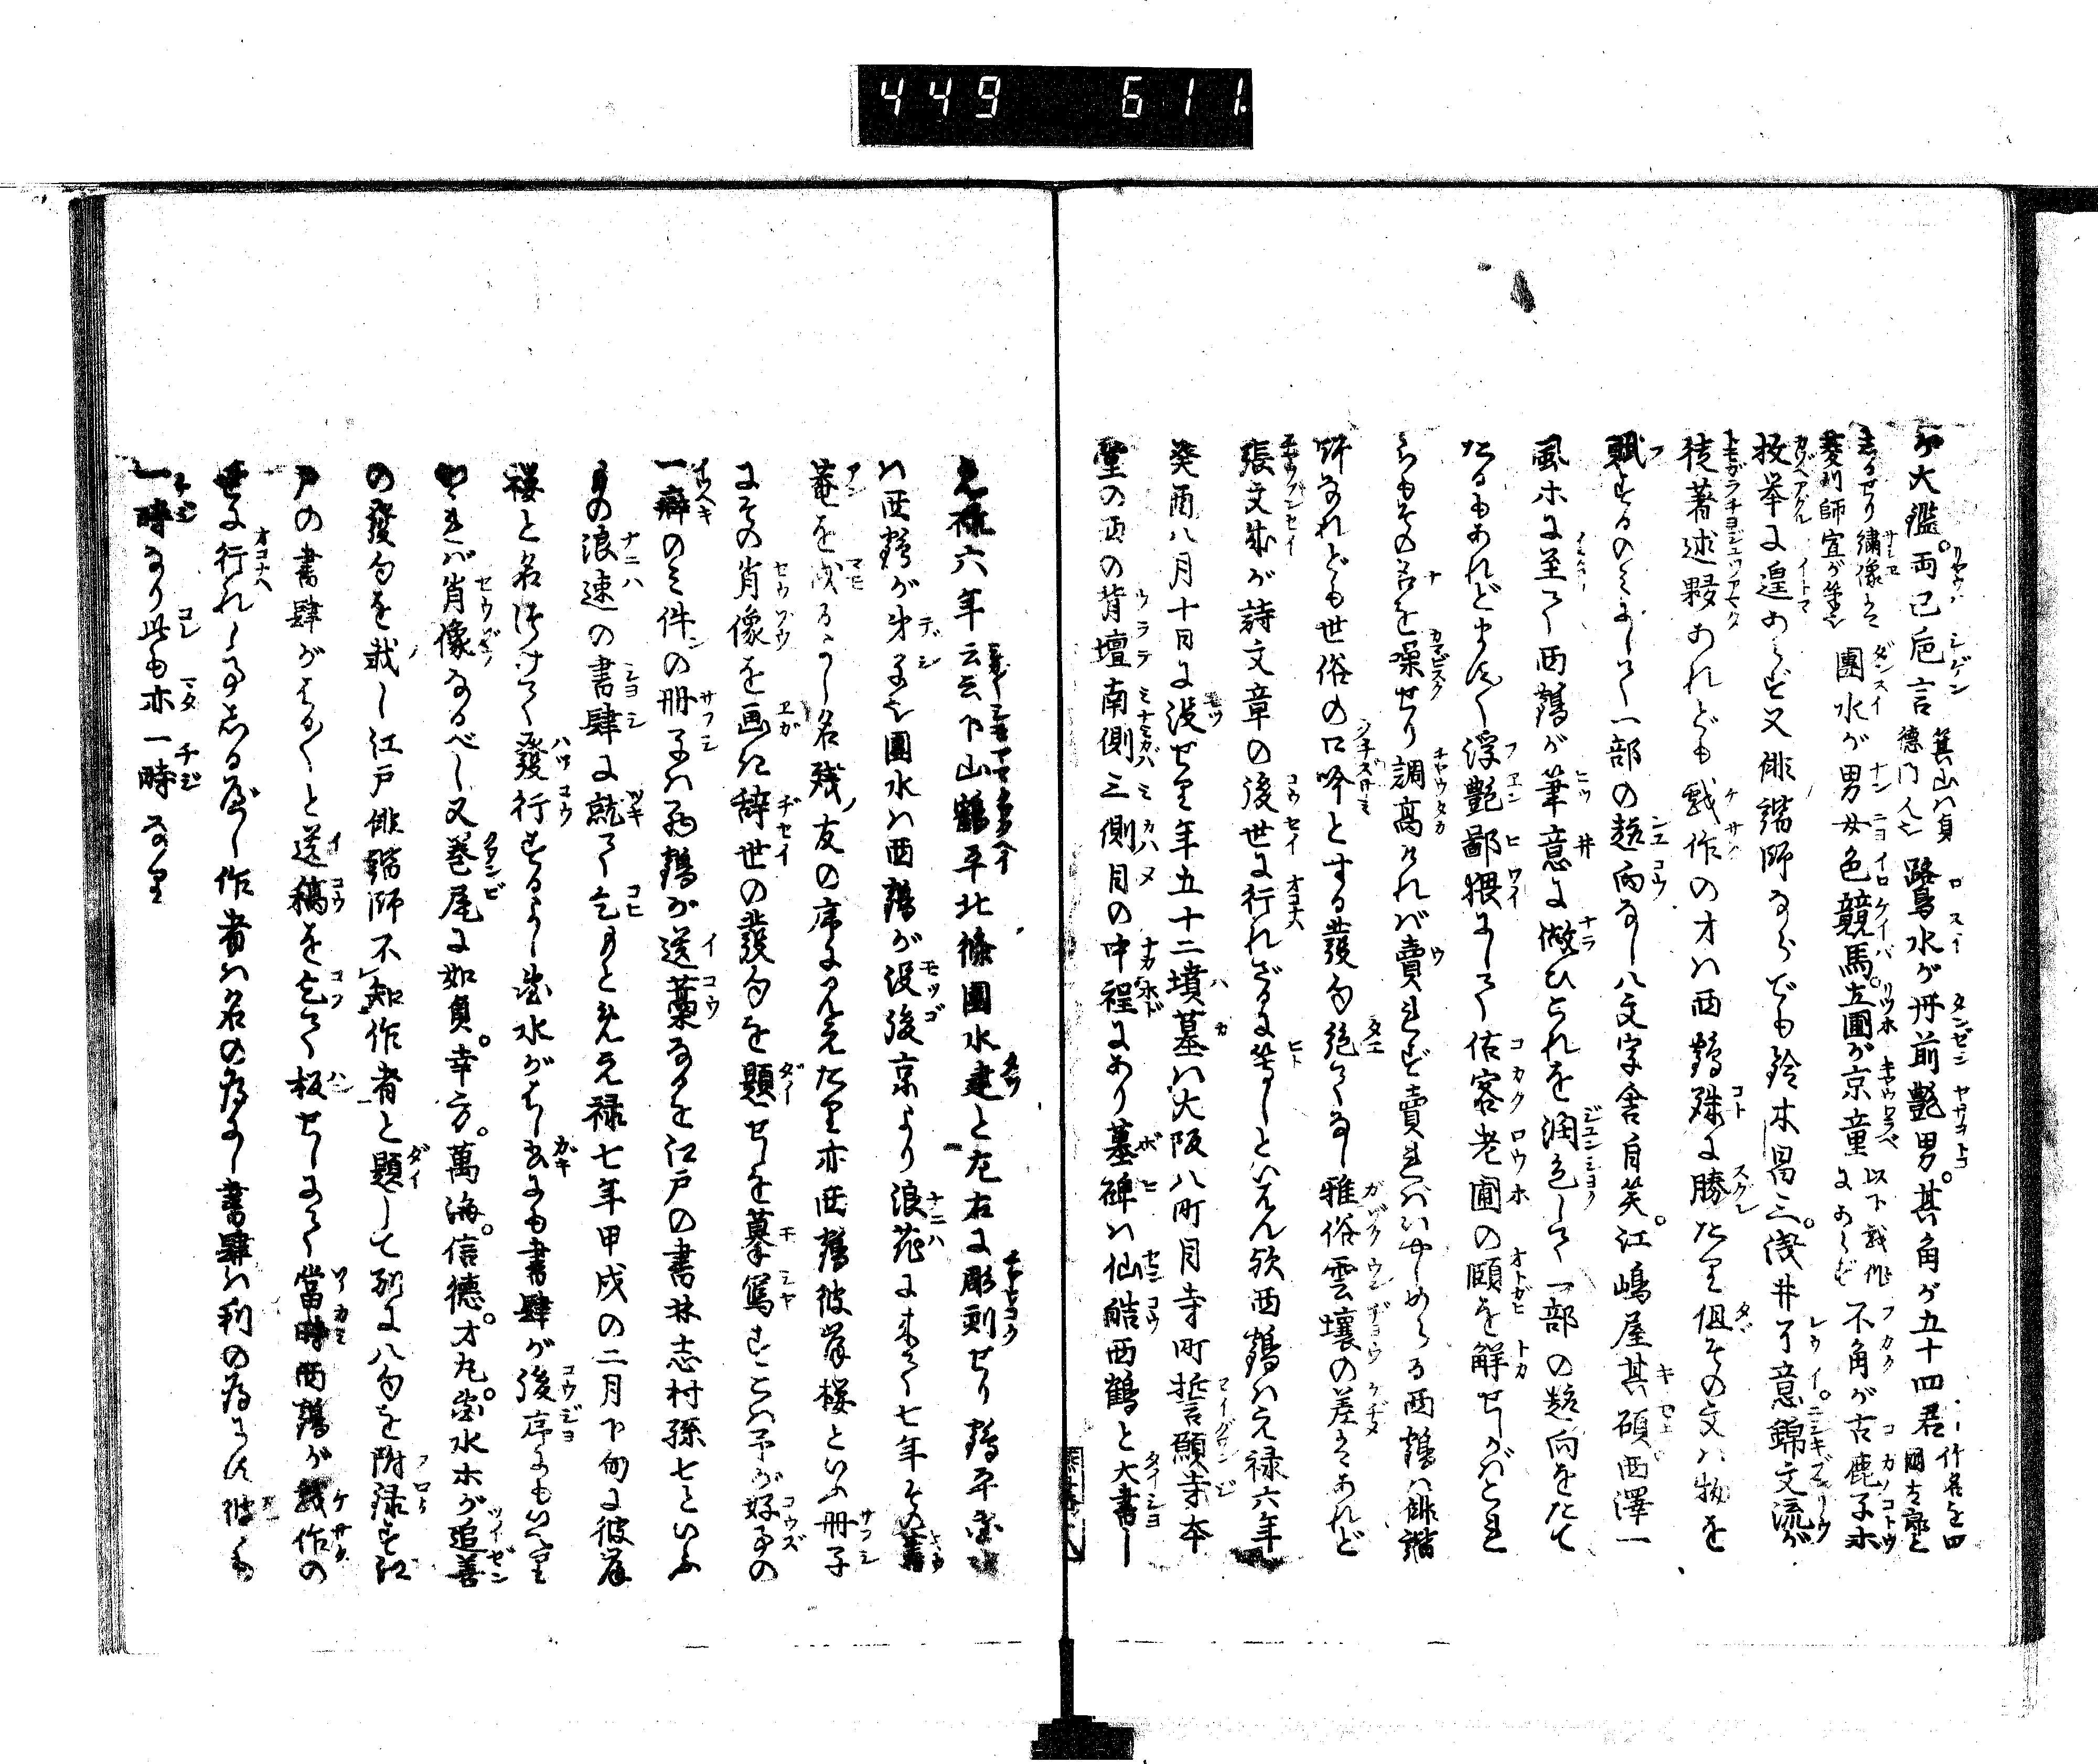 449 611
が大鑑。両巴巵言 箕山ハ貞徳門人也 鷺水が丹前艶男。其角が五十四君
志るせり繍像ハ菱川師宣が筆也 團水が男女色競馬。立圃が京童 以下戯作にあらず 不角が古鹿子ホ
枚挙に遑あらず又俳諧師ならでも鈴木昌三。浅井了意錦文流が
徒著述夥あれども戯作の才ハ西鶴殊に勝たり但その文ハ物を
賦するのミにして一部の趣向なし八文字舎自笑。江嶋屋其磧西澤一
風ホに至て西鶴が筆意に倣ひこれを潤色して一部の趣向をたて
たるもあれど浮艶鄙猥にして估客老圃の頤を解せしがバこれ
らもその名を噪せり調高ければ賣れず賣れハいやしめらる西鶴ハ俳諧
師なれども世俗の口吟とする發句絶てなし雅俗雲壤の差ハあれど
張文成が詩文章の後世に行れざるに等しといえん欤西鶴ハ元禄六年
癸酉八月十日に没せり年五十二墳墓ハ大阪八町目寺町誓願寺本
堂の西の背壇南側三側目の中程にあり墓碑ハ仙皓西鶴と大書し
元禄六年云云下山鶴平北條團水建と左右に彫刻せり鶴平團水
ハ西鶴が弟子也團水ハ西鶴が没後京より浪花に来て七年その舊
菴を戍るよし名残ノ友の序に見えたり亦西鶴彼岸桜といふ冊子
にその肖像を画き辞世の發句を題せしを摹寫すこハ予が好事の
一癖のミ件の冊子ハ西鶴が送藁なるを江戸の書林志村孫七といふ
もの浪速の書肆に就て乞もとめ元禄七年甲戌の二月下旬に彼岸
桜と名づけて發行するよし團水がはし書にも書肆が後序にもいへり
されバ肖像なるべし又巻尾に如貞。幸方。萬海。信徳。才丸。團水ホが追善
の發句を載し江戸俳諧師不知作者と題して別に八句を附録す江
戸の書肆がはる〱と送稿を乞て板せしにて當時西鶴が戯作の
世に行れし事しるべし作者ハ名の為にし書肆ハ利の為にす彼も
一時なり此も亦一時なり